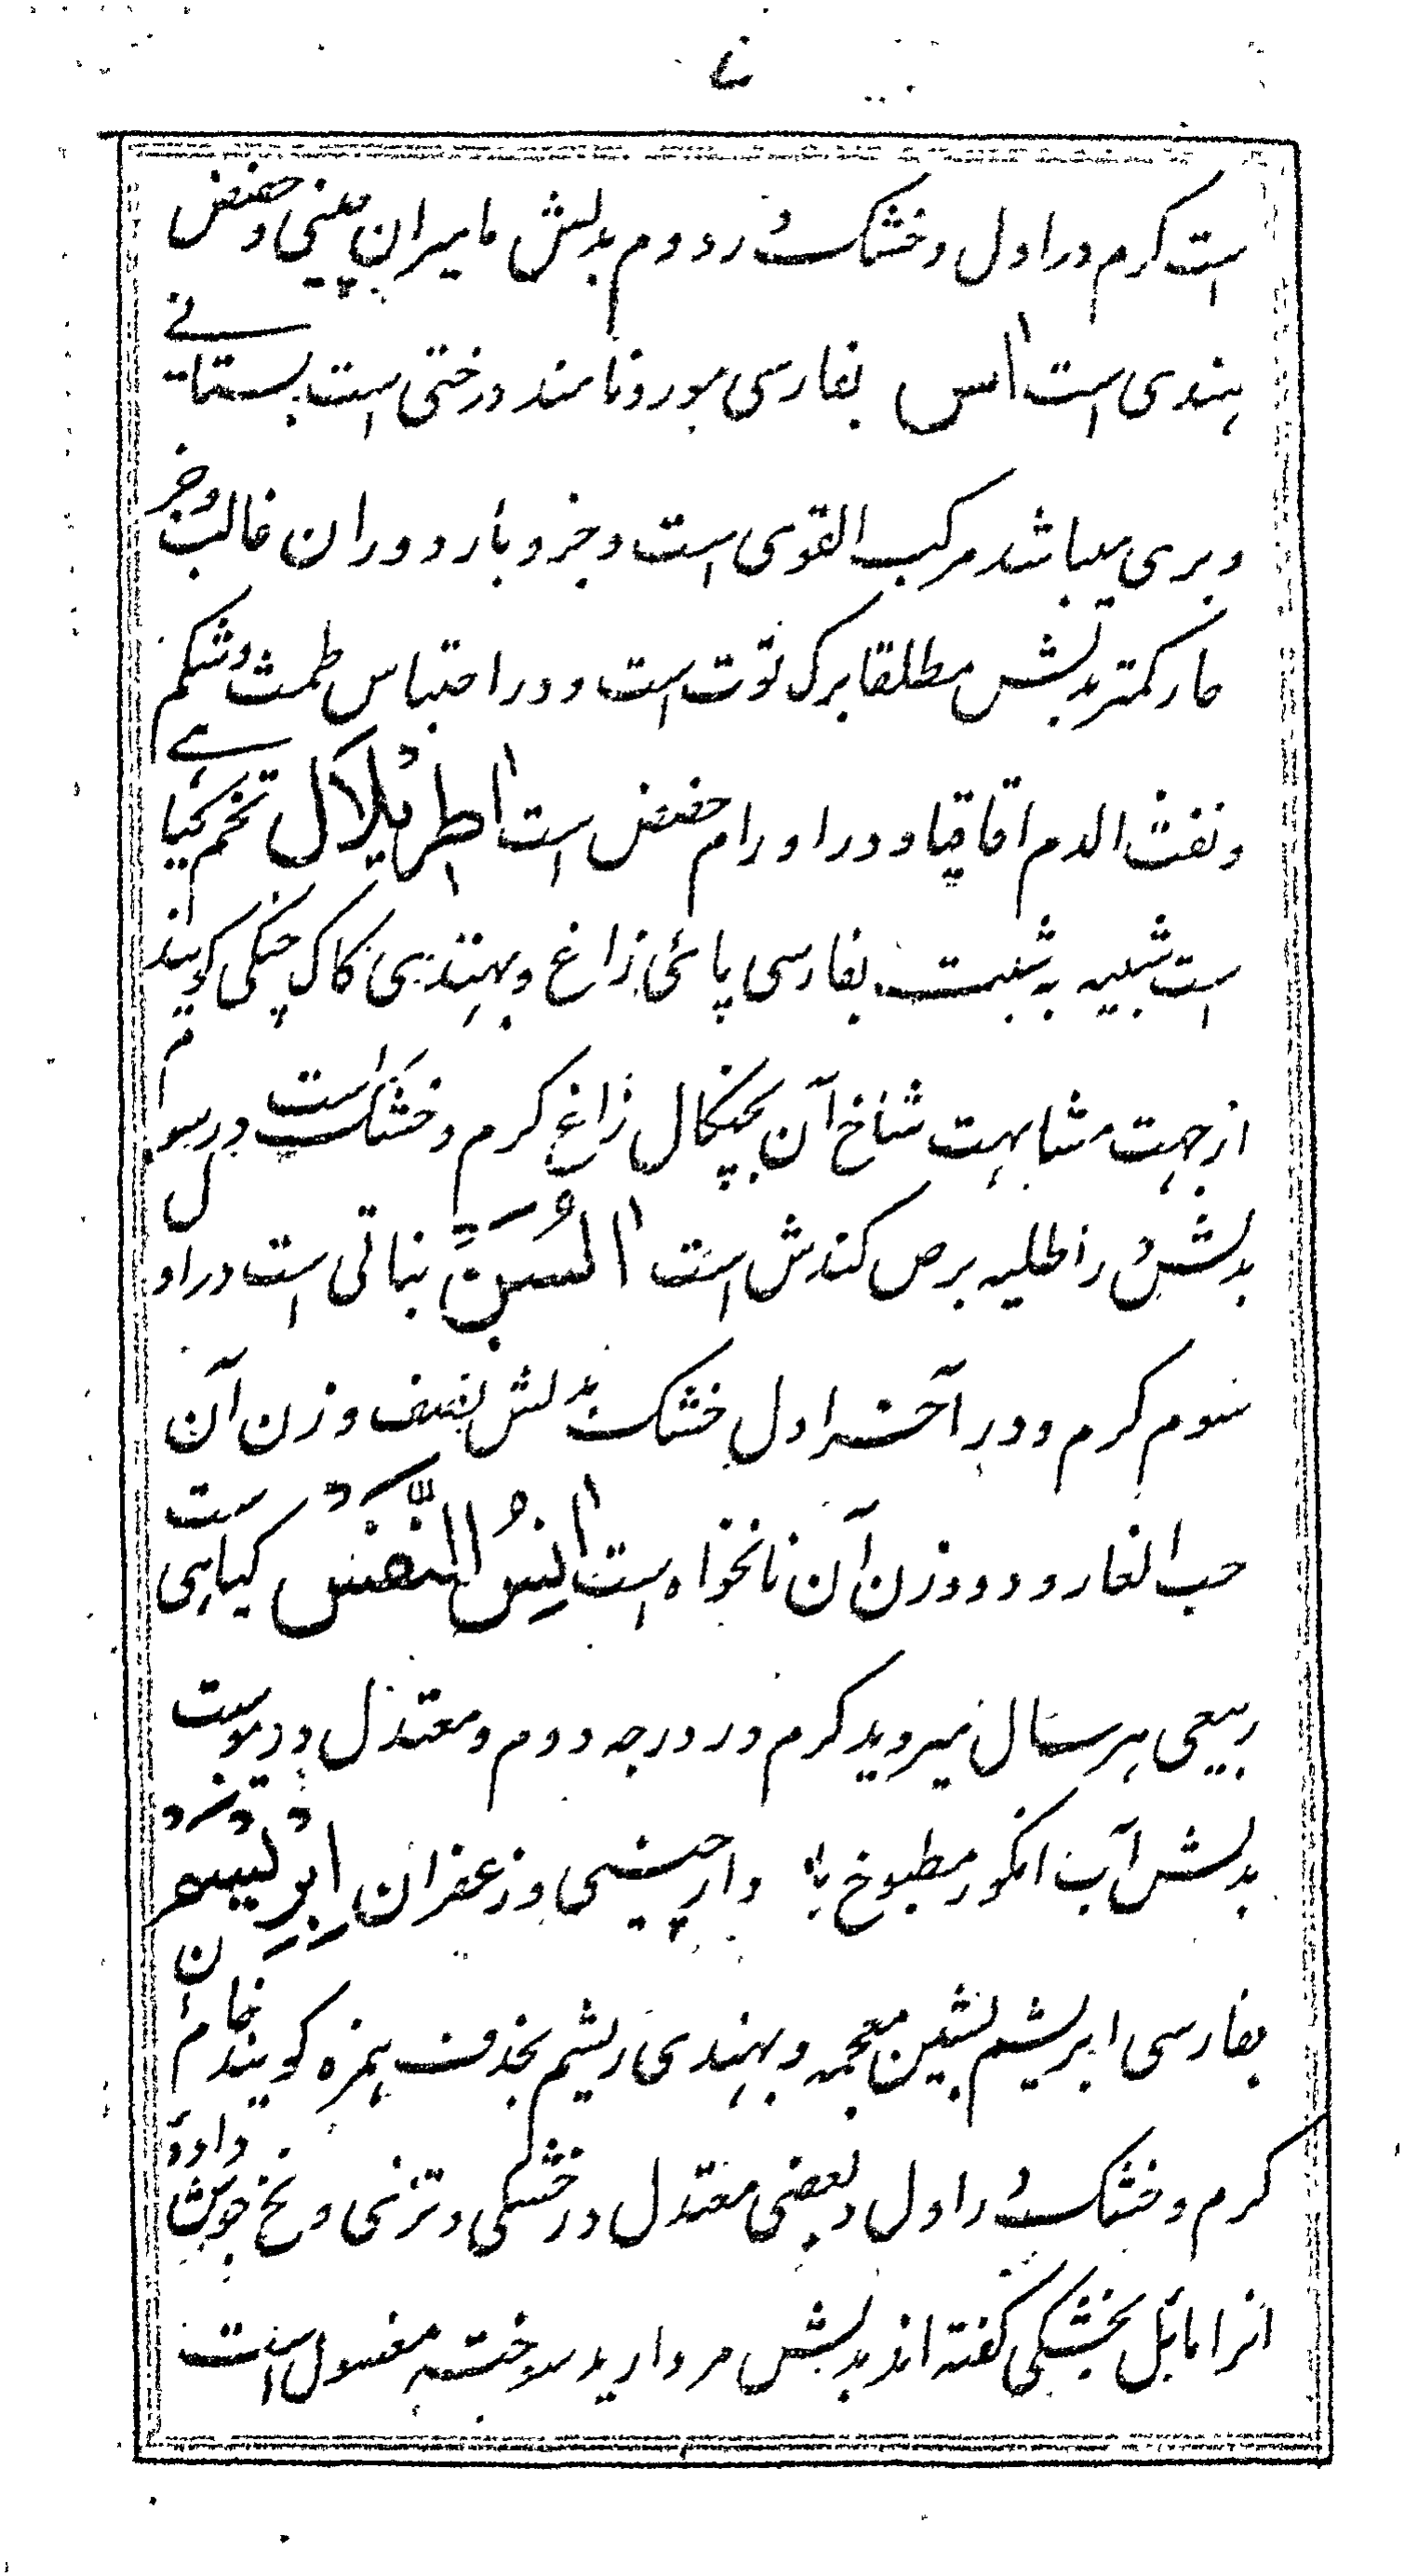 ۷
است کرم در اول و خشک در دوم بدلش مامیران چینی و حضض
هندی است اس بفارسی مورد نامند درختی است بستانے
و بری میباشد مرکب القوی است و جزو بارد در ان غالب و جز
حار کمتر بدلش مطلقا برک توت است و در احتباس طمث و شکم
و نفث الدم اقاقیا و در اورام حضض است اطریلال تخم گیاہے
است شبیه به شبت بفارسی پائی زاغ و بهندی کاک جنکی کویند
از جهت مشابهت شاخ آن بچنکال زاغ کرم و خشک است در سوم
بدلش در اطلیه برص کندش است السبن نباتی است در اول
سوم کرم و در آخر اول خشک بدلش نصف وزن آن
حب الغار و دو وزن آن نانخواه است انس النفس کیاهی ست
ربیعی هر سال میروید کرم در درجه دوم و معتدل در یبوست
بدلش آب انکور مطبوخ با دارچینی و زعفران ابریسم
بفارسی ابریشم بشین معجمه و بهندی ریشم بحذف همزه کویند خام ان
کرم و خشک در اول و بعضی معتدل در خشکی و تری و نخ جوش داده
انرا مائل بخشکی کفته اند بدلش مروارید سوخته مغسول است